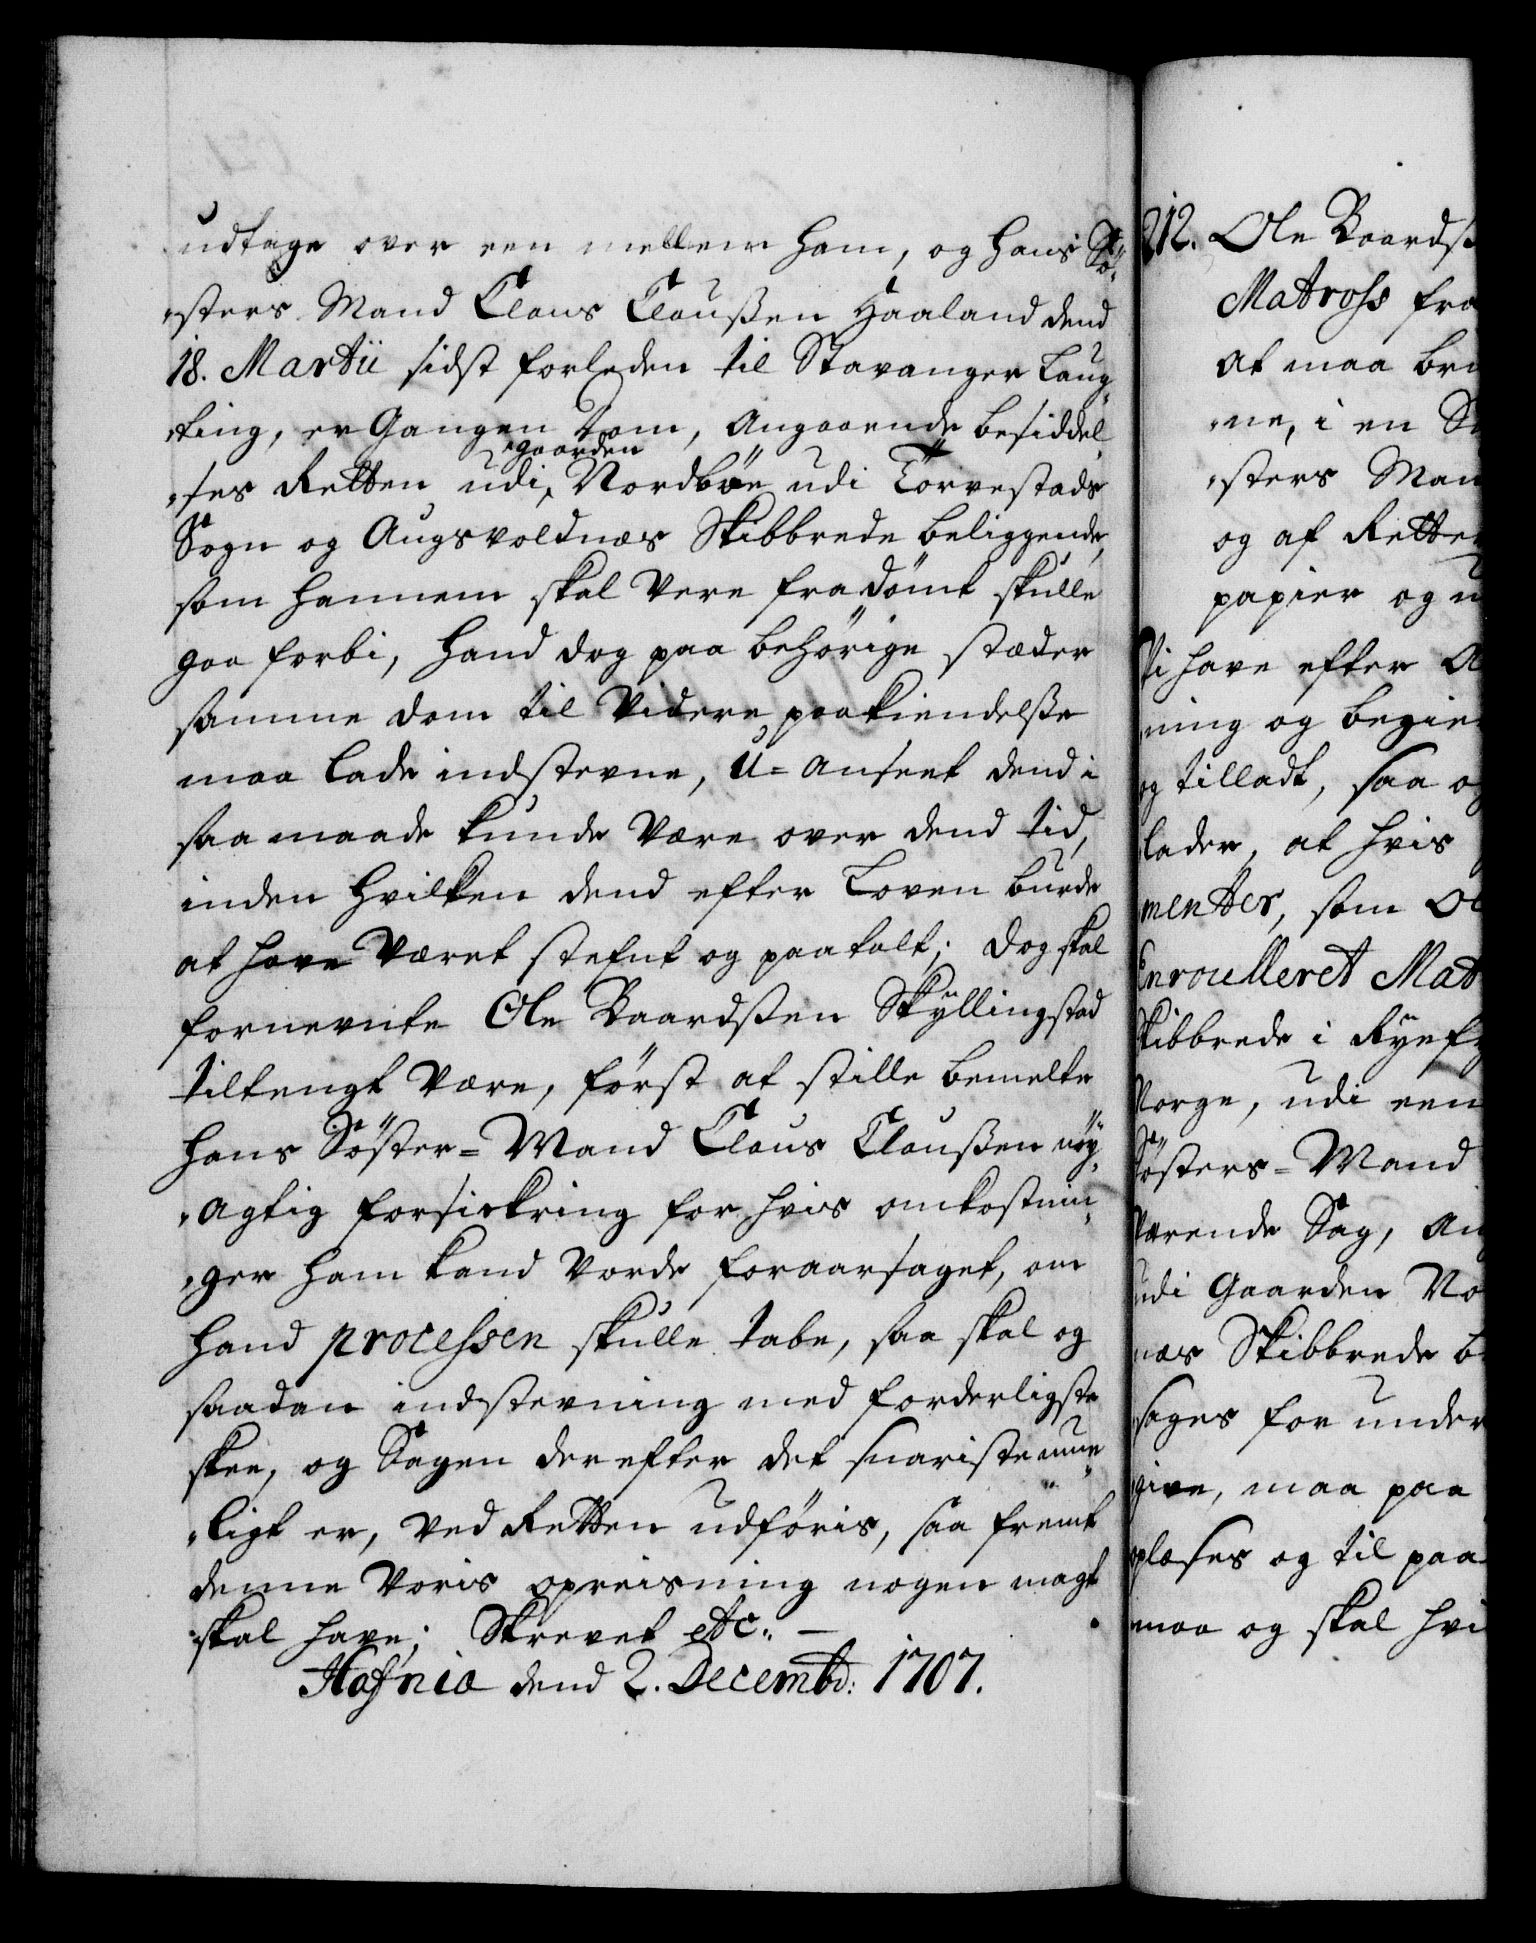 udtage over een mellem ham, og hans Sö-
sters Mand Claus Claußen Haaland dend
18. Martii sidst forleden til Stavanger Laug-
ting, er Gangen Dom, Angaaende besiddel-
ses Retten udi gaarden Nordböe udi Torvestads
Sogn og Augsvoldnæs Skibbrede beliggende,
som hannem skal Vere fradömt skulle
gaa forbi, hand dog paa behörige stæder
samme dom til Videre paakiendelße
maa lade indstevne, U-anseet dend i
saa maade kunde Være over dend tid,
inden hvilken dend efter Loven burde
at have Været stefnt og paatalt; dog skal
fornevnte Ole Baardsßen Skÿllingstad
tiltengt Være, först at stille bemelte
hans Söster-Mand Claus Claußen nöÿ-
agtig forsickring for hvis omkostnin-
ger ham kand Vorde foraarsaget, om
hand processen skulle tabe, saa skal og
saadan indstevning med forderligste
skee, og Sagen derefter det snariste mue-
ligt er, Ved Retten udföris, saa fremt
denne Voris opreisning nogen magt
skal have; Skrevet etc:
Hafniæ dend 2. Decembr: 1707.
212. Ole Baardsß
Matross fra
at maa bru
ne, i en Sa
sters Man
og af Rette
papier og u
Vi have efter A
ning og begie
og tilladt, saa o
lader, at hvis
menter, som Ol
Enroulleret Mat
Skibbrede i Rÿef
Norge, udi een
Sösters-Mand
Værende Sag, An
udi Gaarden No
næs Skibbrede b
sages for under
give, maa paa
plæses og til paa
maa og skal hvi